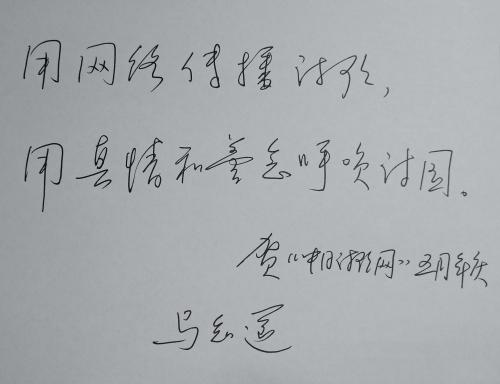 用网络传播诗歌，
用真情和善念呼唤诗国。
贺“中国诗歌网”五周年庆
马忘运